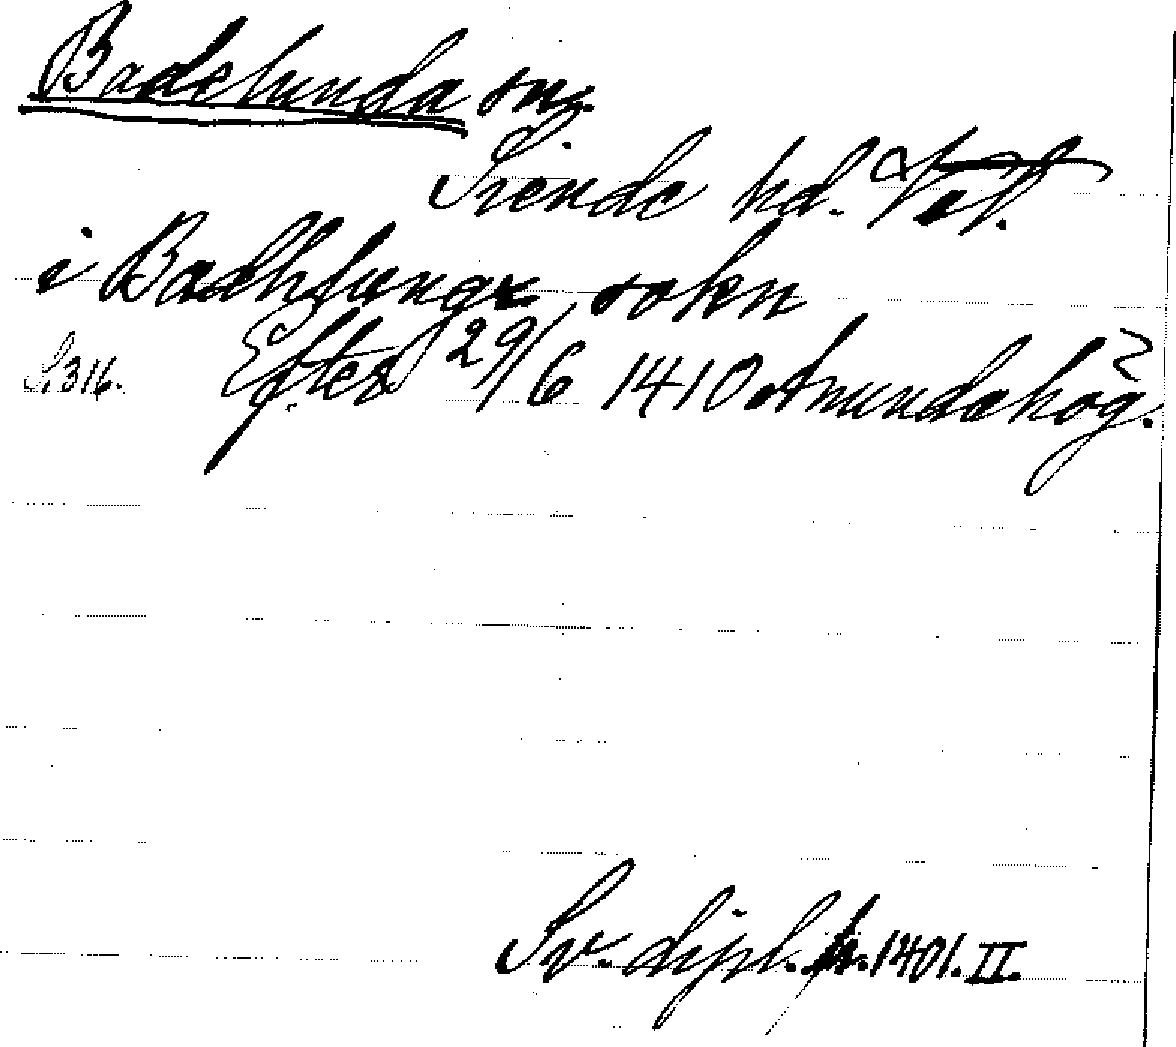 Badelunda sn.
Siende hd. Vstm.
i Badhlunge sokn
S. 316. Efter 29/6 1410 Amundehög.
Sv. dipl. fr. 1401. II.